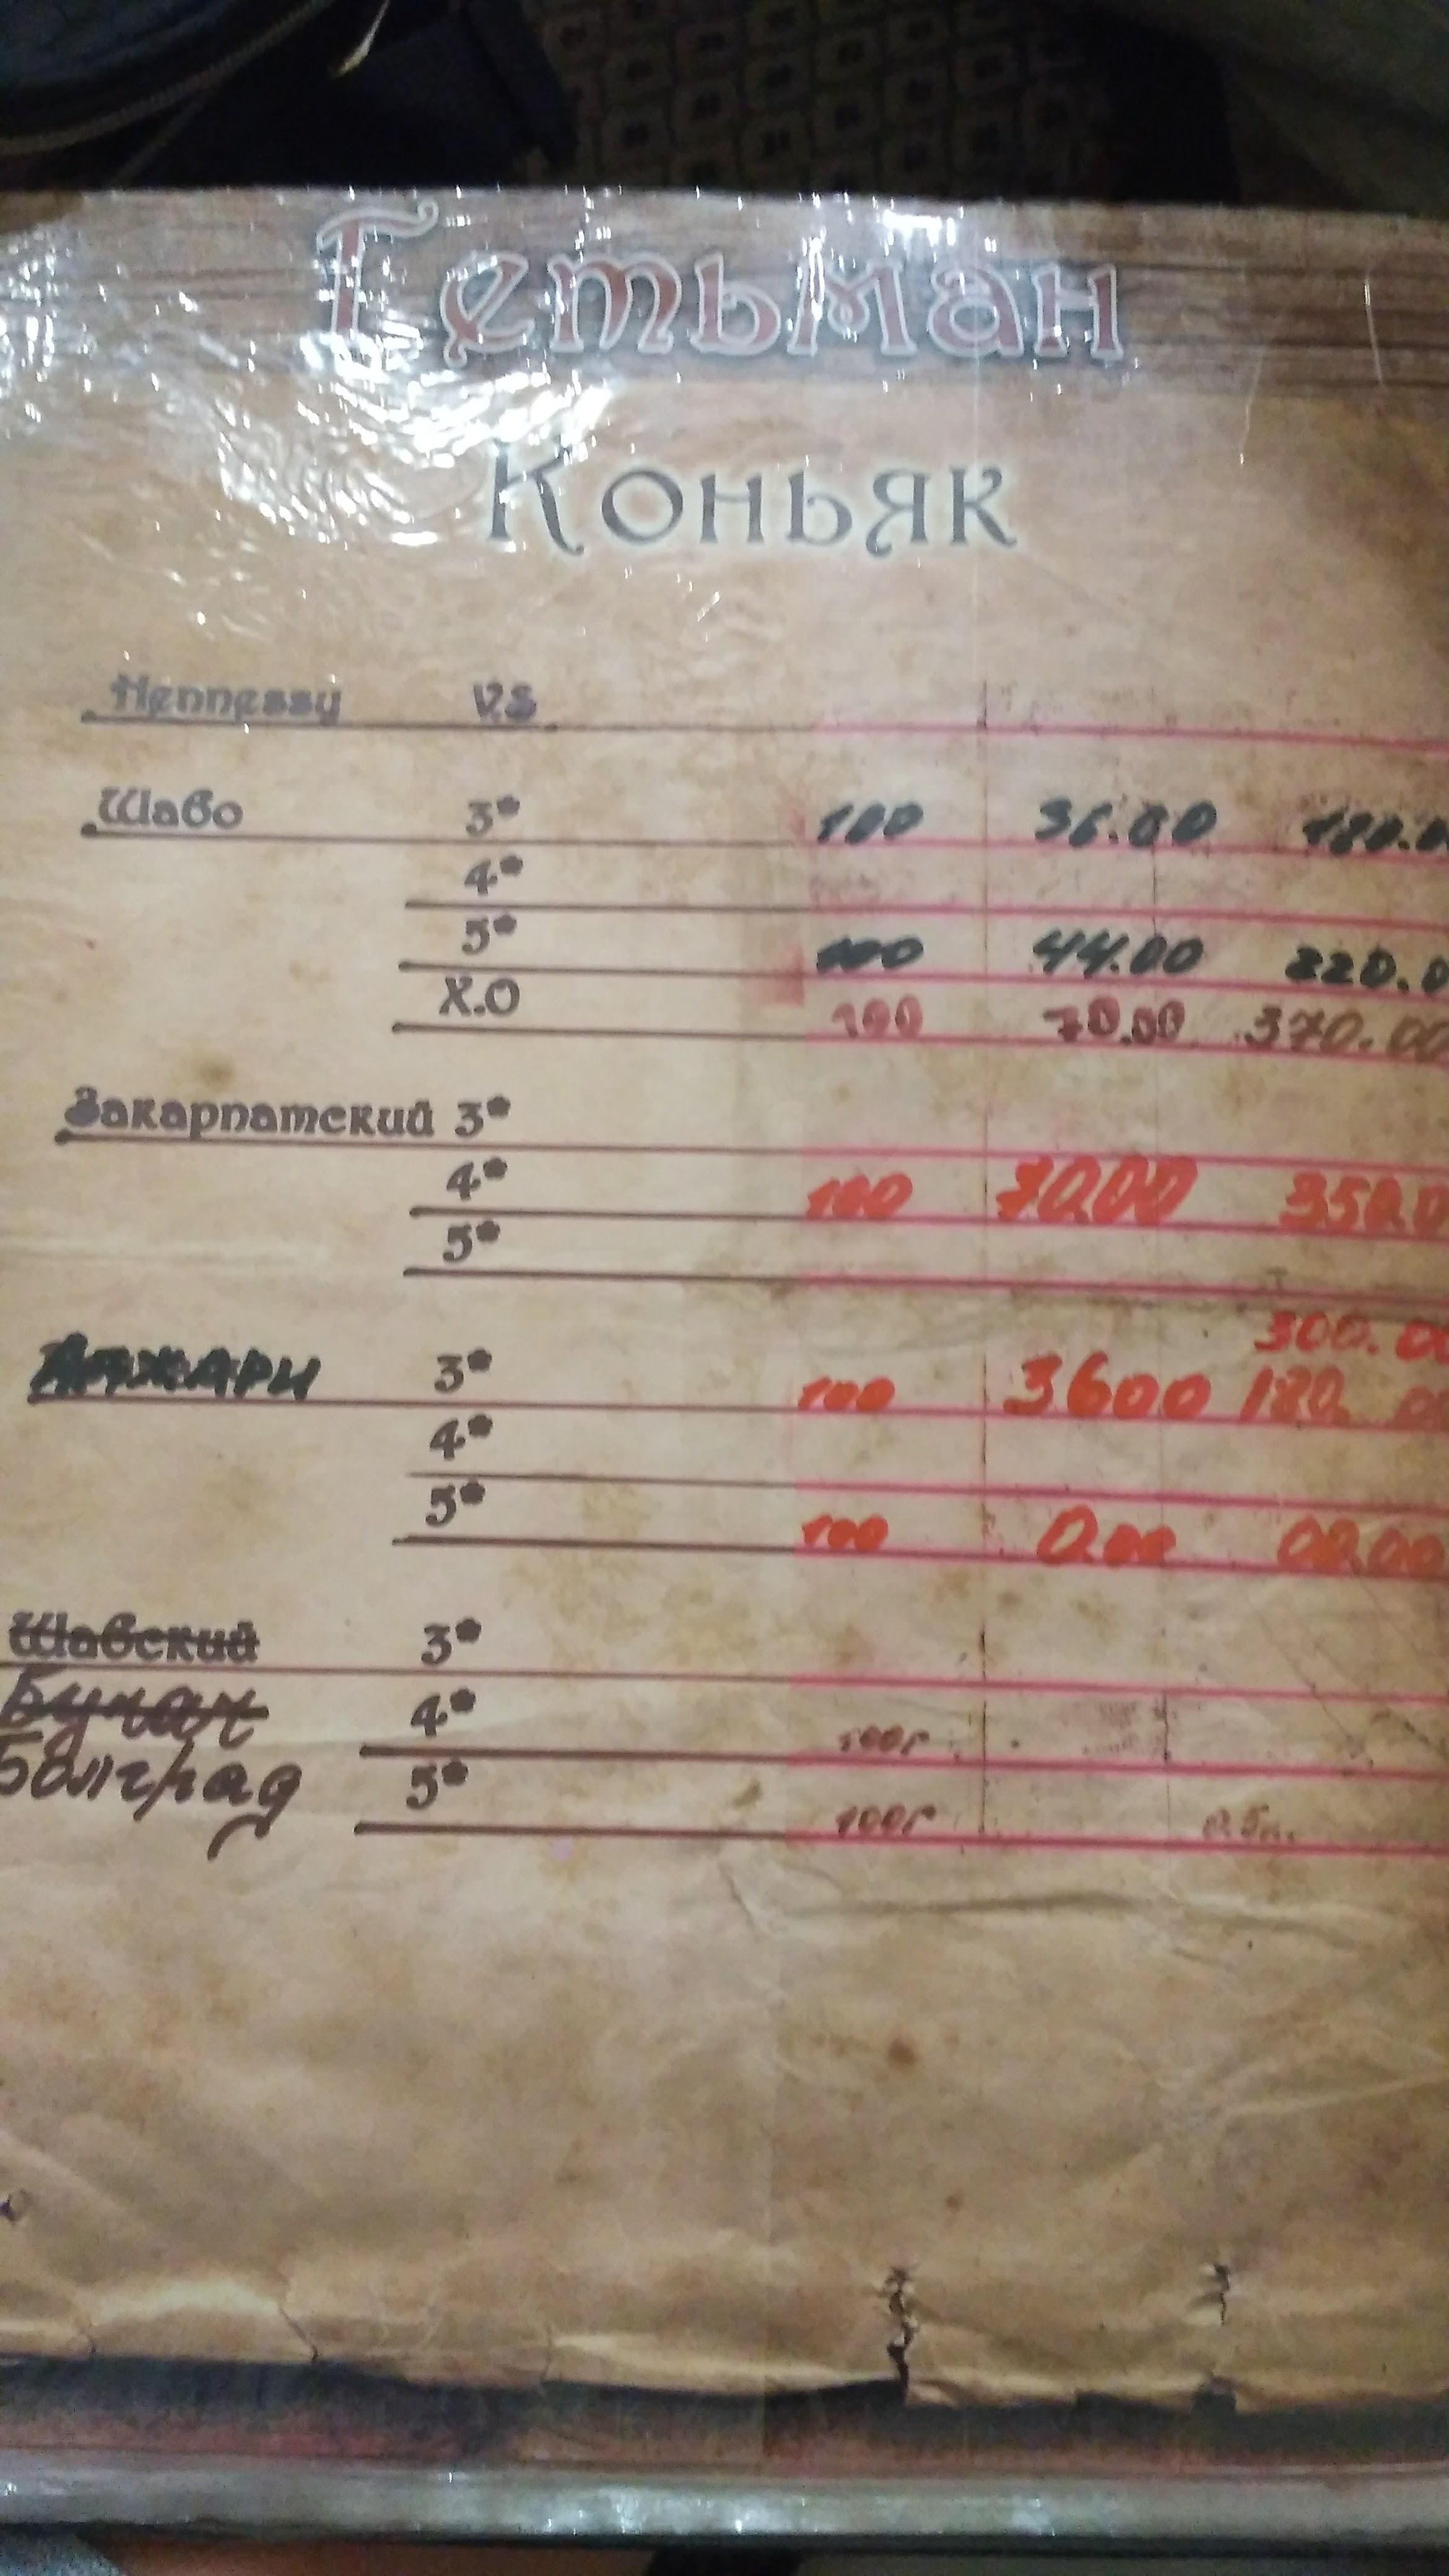 Гетьман
Коньяк
Hennessy V.S
Шабо 3* 100 36.00 180.0
4*
5* 100 44.00 220.0
X.O 100 70.00 370.00
Закарпатский 3*
4* 100 70.00 350.0
5*
300.00
Аджари 3* 100 3600 180. 00
4*
5* 100 0.00 00.00
Шабский 3*
4* 100г
Болград 5* 100г 0.5л.